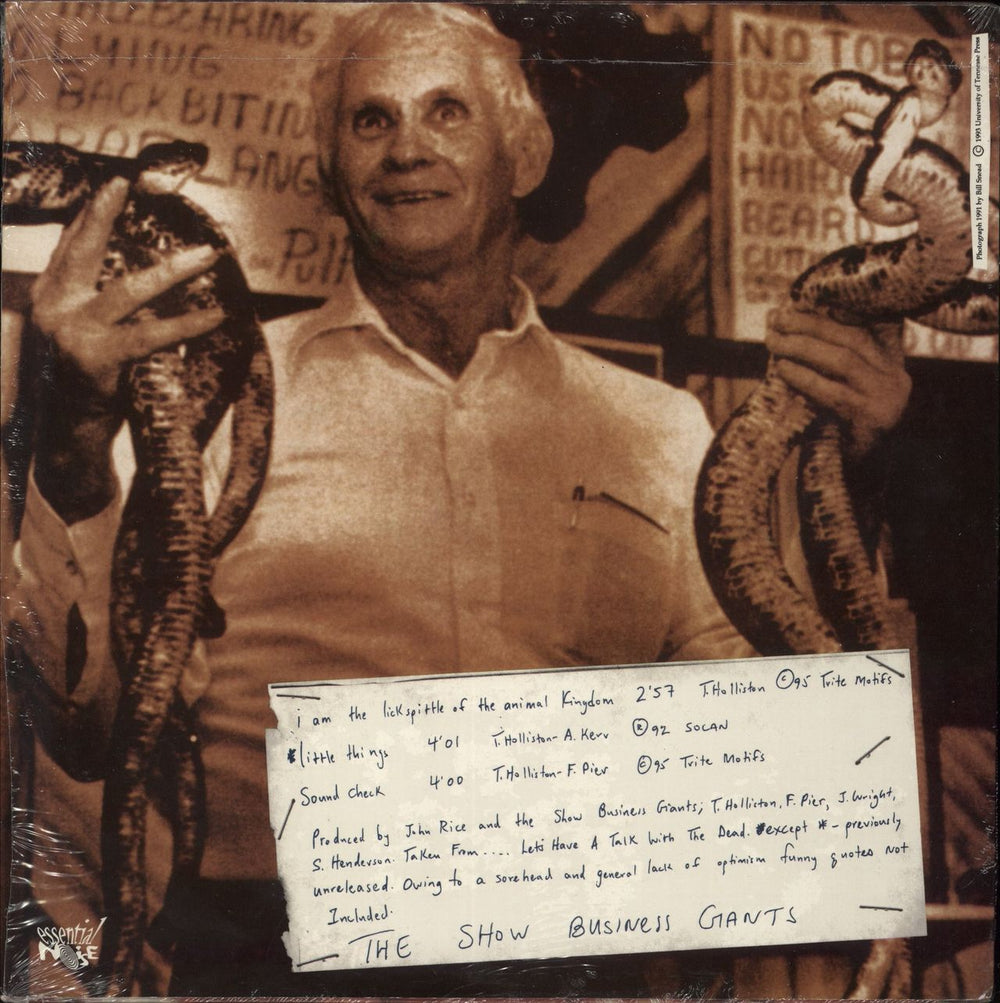 BEARING
LYING
BACKBITTING
BAD LANG
NO TOB
US
NO
HAI
BEARD
CUTT
Photograph 1991 by Bill Snead © 1993 University of Tennessee Press
i am the lickspittle of the animal Kingdom 2'57 T.Holliston ©95 Trite Motifs
*little things 4'01 T.Holliston- A. Kerr ®92 SOCAN
Sound Check 4'00 T.Holliston- F. Pier ©95 Trite Motifs
Produced by John Rice and the Show Business Giants; T.Holliston, F. Pier, J. Wright,
S. Henderson. Taken From.... Lets Have A Talk With The Dead. except * - previously
unreleased. Owing to a sorehead and general lack of optimism funny quotes not
Included.
THE SHOW BUSINESS GIANTS
essential
NOISE